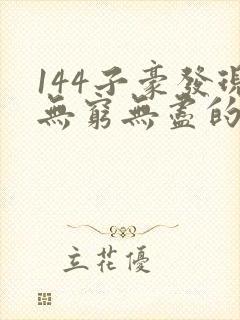 144子豪發現
無窮無盡的
立花優